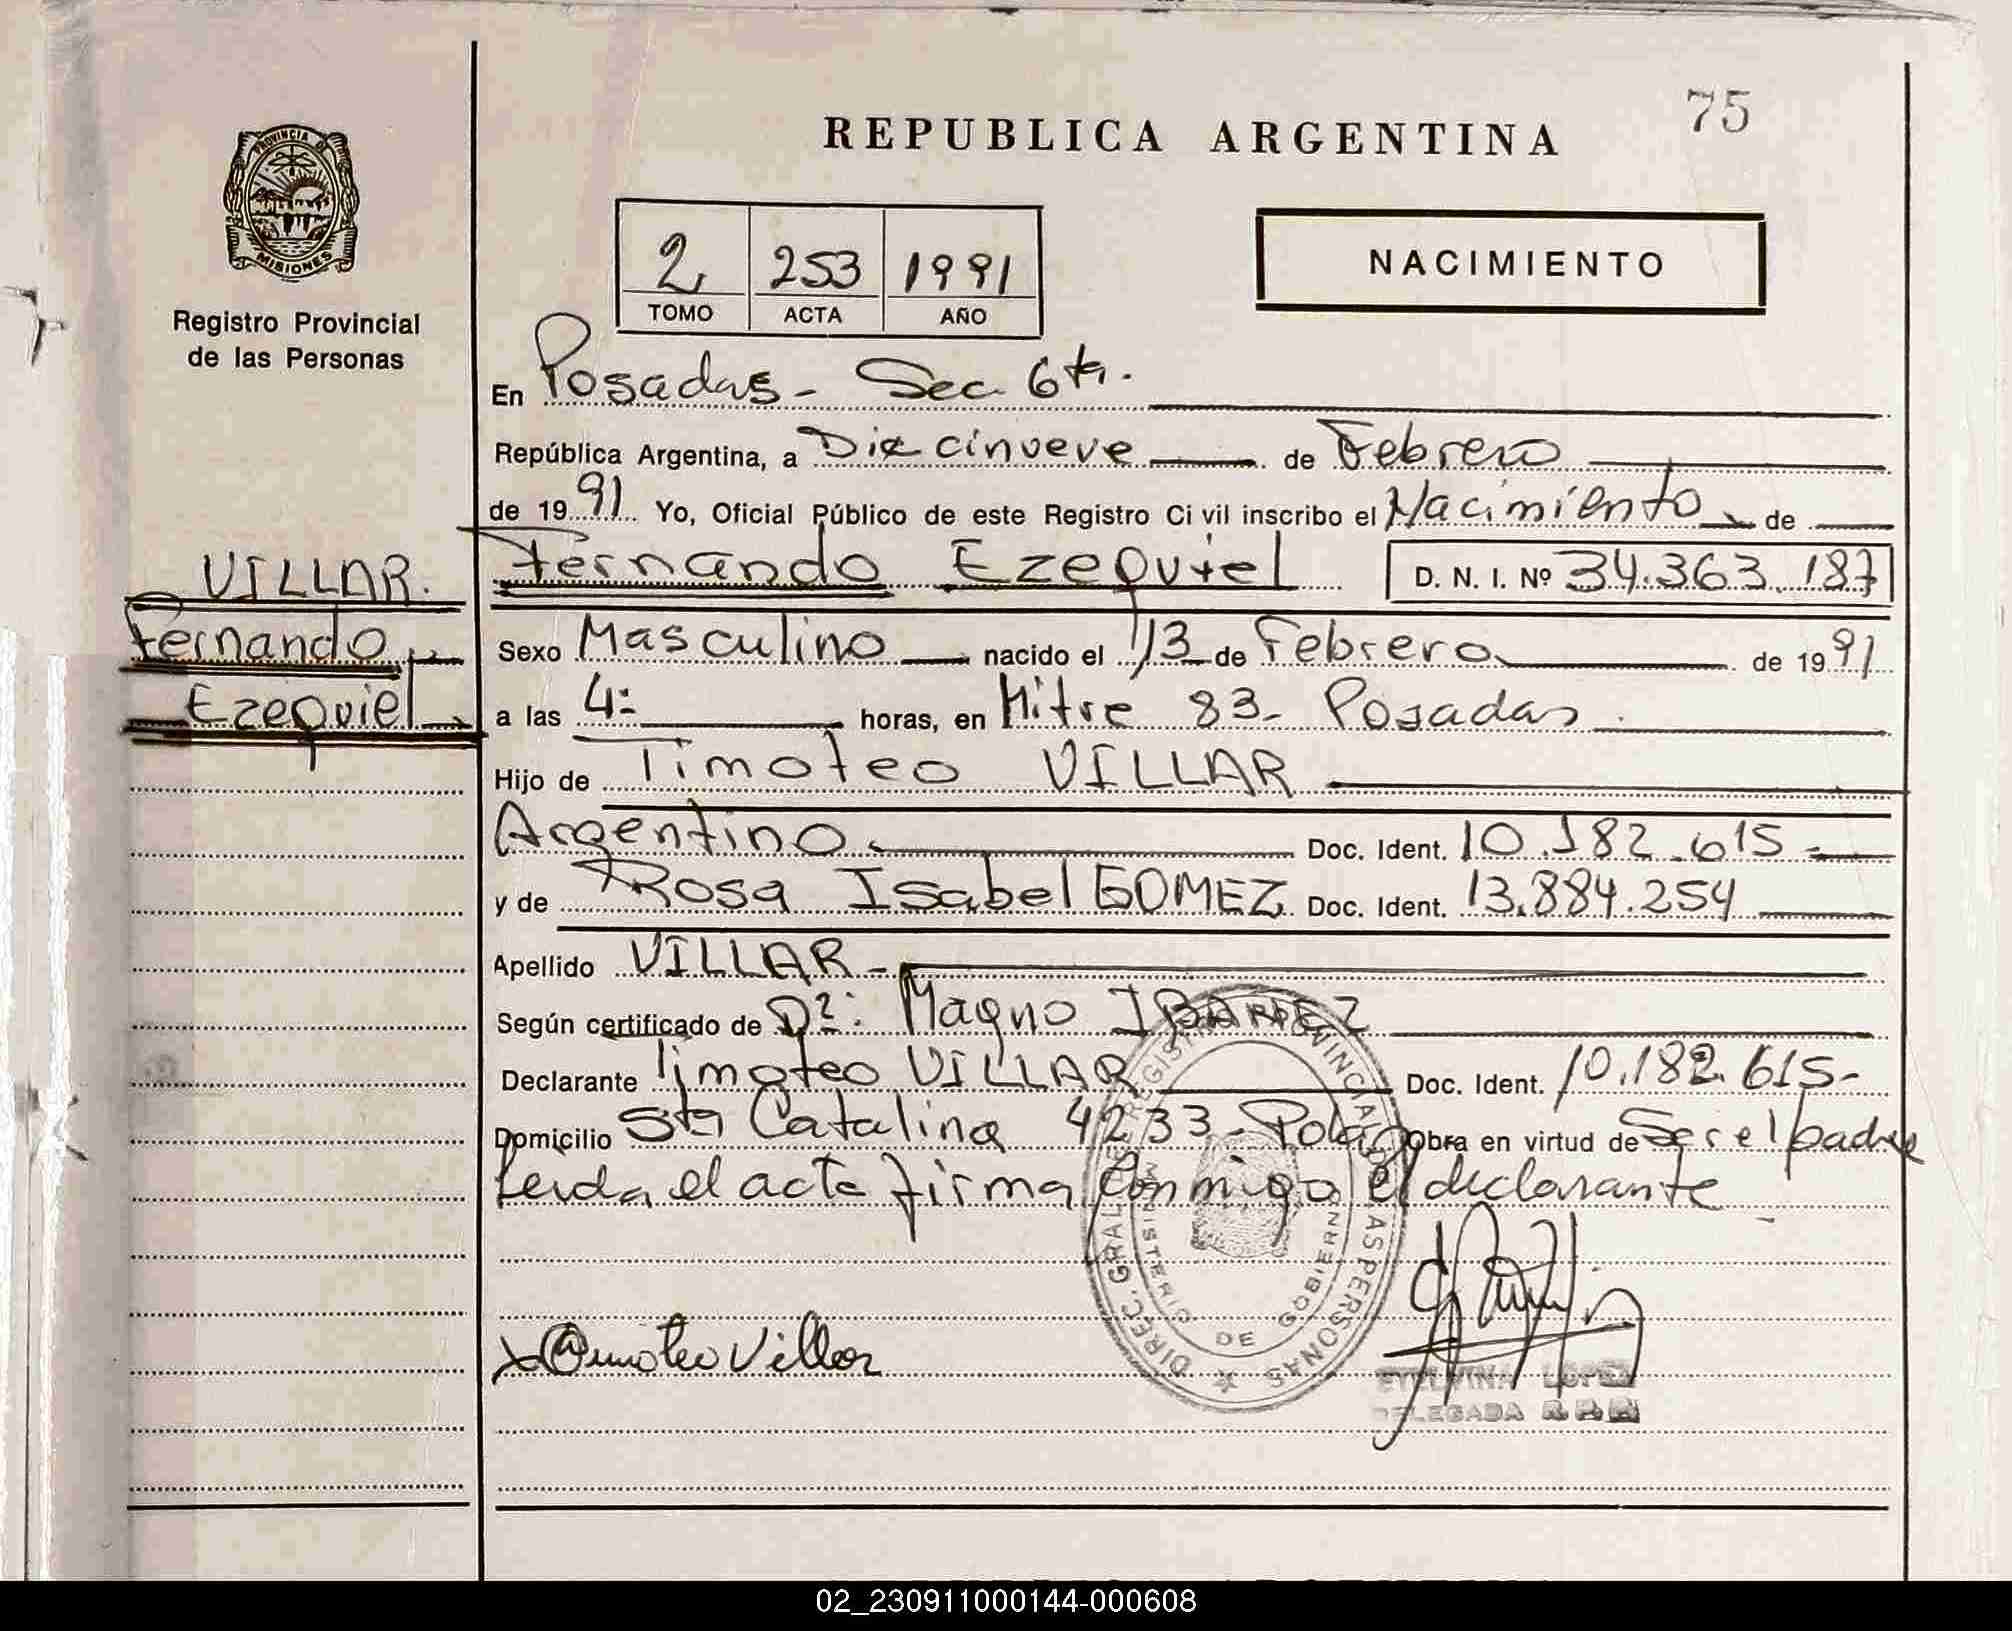 75
REPUBLICA ARGENTINA
PROVINCIA DE
MISIONES
Registro Provincial
de las Personas
2 253 1991
TOMO ACTA AÑO
NACIMIENTO
En Posadas - Sec 6ta.
República Argentina, a Diecinueve de Febrero
de 1991 Yo, Oficial Público de este Registro Civil inscribo el Nacimiento de
VILLAR.
Fernando Ezequiel D. N. I. Nº 34.363.187
Fernando
Ezequiel
Sexo Masculino nacido el 13 de Febrero de 1991
a las 4: horas, en Mitre 83 - Posadas
Hijo de Timoteo VILLAR
Argentino Doc. Ident. 10.182.615-
y de Rosa Isabel GOMEZ Doc. Ident. 13.884.254
Apellido VILLAR -
Según certificado de Dº: Magno IBAÑEZ
Declarante Timoteo VILLAR Doc. Ident. 10.182.615-
Domicilio Sta Catalina 4233 - Obra en virtud de Ser el padre
Leida el acta firma conmigo el declarante
DIREC. GRAL. DE REGISTRO PROVINCIAL DE LAS PERSONAS
MINISTERIO DE GOBIERNO
x Timoteo Villar
LOPEZ
DELEGADA R.P.P.
02_230911000144-000608